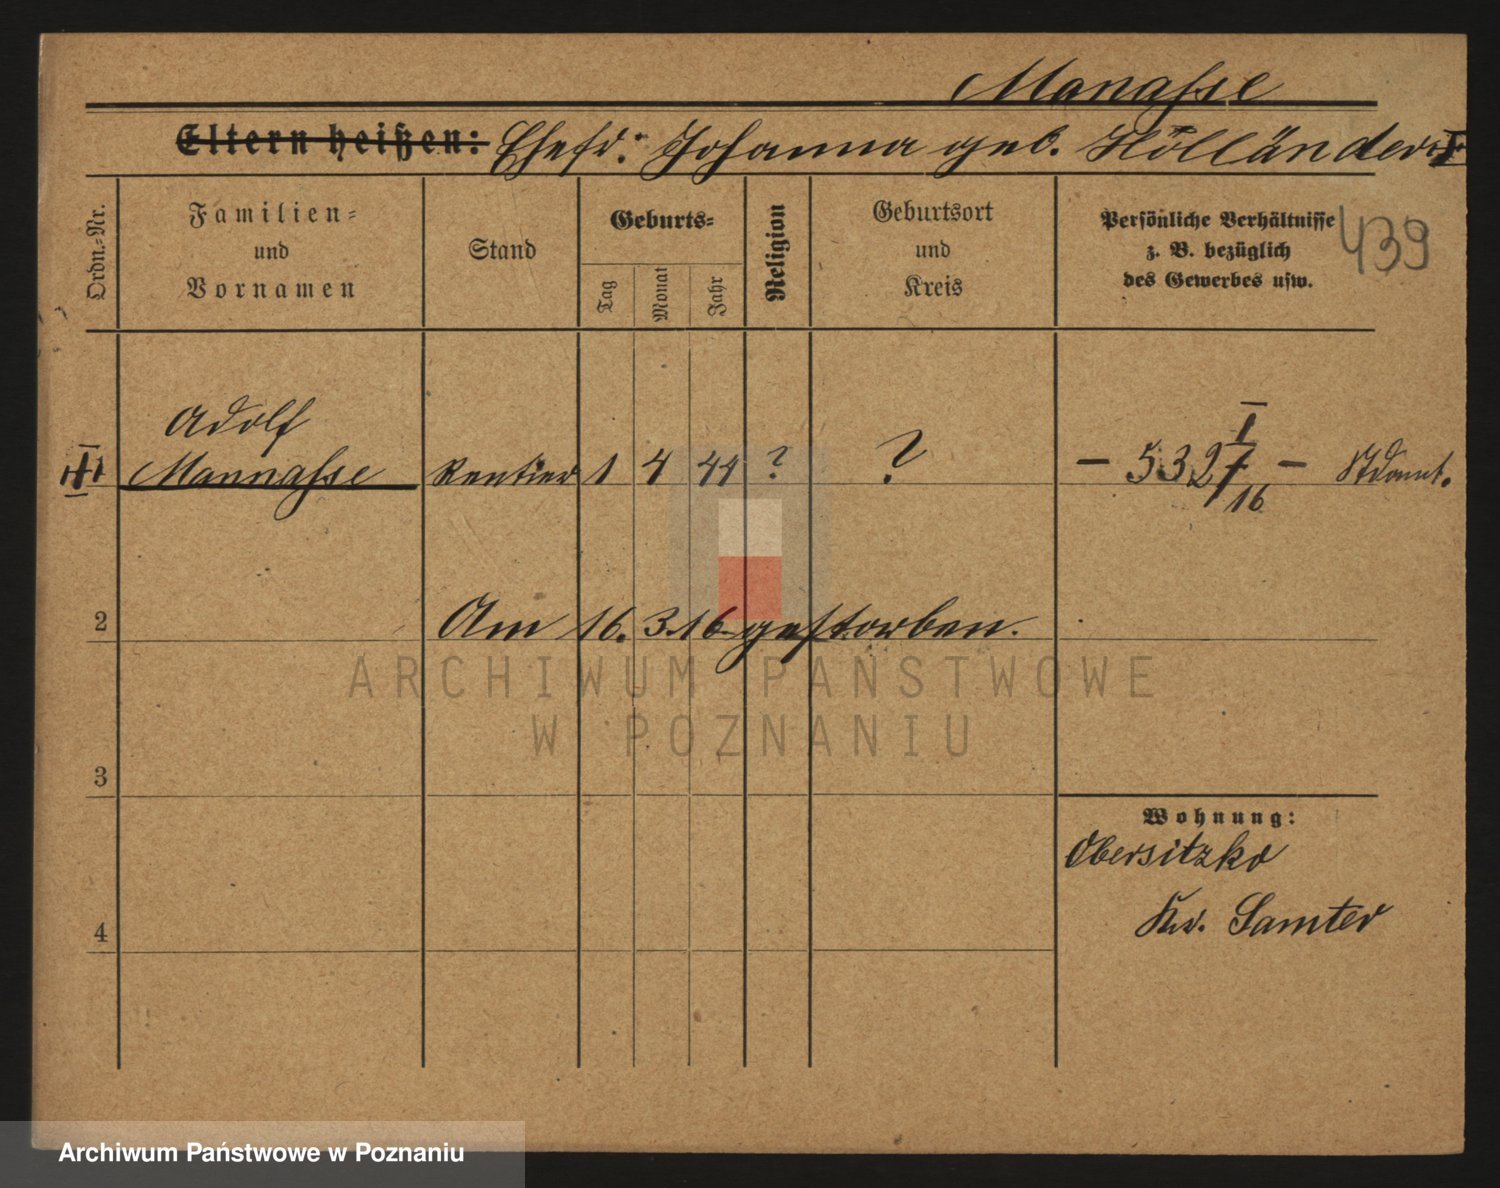 Manasse
Eltern heißen: Ehefr.: Johanna geb. Holländer
Ordn.-Nr.
Familien-
und
Vornamen
Stand
Geburts-
Tag
Monat
Jahr
Religion
Geburtsort
und
Kreis
Persönliche Verhältnisse
z. B. bezüglich
des Gewerbes usw.
439
Adolf
1 Mannasse Rentier 1 4 44 ? ? – 532 I/16 – Stdamt.
2 Am 16. 3. 16 gestorben.
ARCHIWUM PAŃSTWOWE
W POZNANIU
3
Wohnung:
Obersitzko
Kr. Samter
4
Archiwum Państwowe w Poznaniu